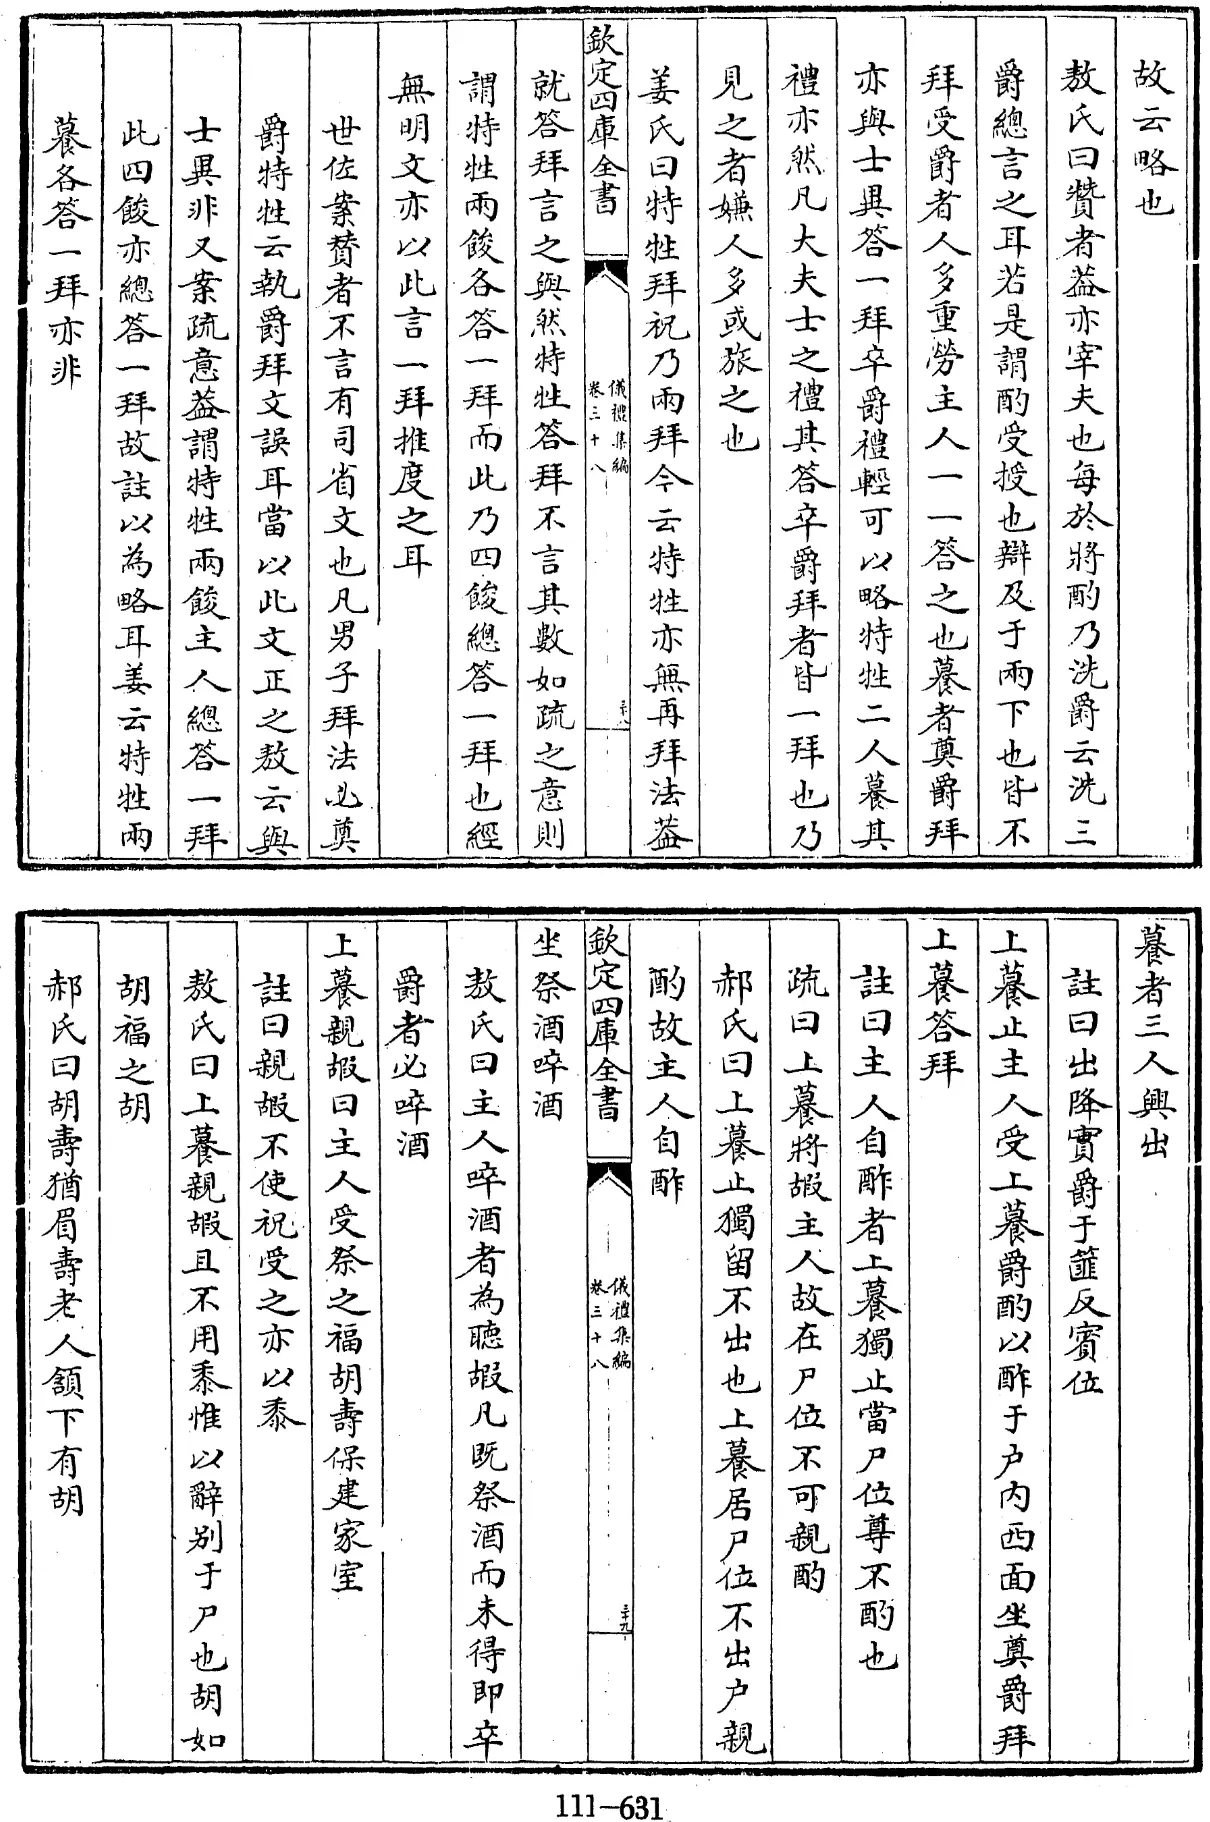 故云略也
敖氏曰贊者葢亦宰夫也每於將酌乃洗爵云洗三
爵總言之耳若是謂酌受授也辯及于兩下也皆不
拜受爵者人多重勞主人一一答之也養者奠爵拜
亦與士異答一拜卒爵禮輕可以略特牲二人養其
禮亦然凡大夫士之禮其答卒爵拜者皆一拜也乃
見之者嫌人多或旅之也
姜氏曰特牲拜祝乃兩拜今云特牲亦無再拜法葢
欽定四庫全書
儀禮集編
卷三十八
三十八
就答拜言之與然特牲答拜不言其數如疏之意則
謂特牲兩餕各答一拜而此乃四餕總答一拜也經
無明文亦以此言一拜推度之耳
世佐案贊者不言有司省文也凡男子拜法必奠
爵特牲云執爵拜文誤耳當以此文正之敖云與
士異非又案疏意葢謂特牲兩餕主人總答一拜
此四餕亦總答一拜故註以為略耳姜云特牲兩
養各答一拜亦非
養者三人興出
註曰出降實爵于篚反賓位
上養止主人受上養爵酌以酢于户内西面坐奠爵拜
上養答拜
註曰主人自酢者上養獨止當尸位尊不酌也
疏曰上養將嘏主人故在尸位不可親酌
郝氏曰上養止獨留不出也上養居尸位不出户親
酌故主人自酢
欽定四庫全書
儀禮集編
卷三十八
三十九
坐祭酒啐酒
敖氏曰主人啐酒者為聽嘏凡既祭酒而未得即卒
爵者必啐酒
上養親嘏曰主人受祭之福胡壽保建家室
註曰親嘏不使祝受之亦以黍
敖氏曰上養親嘏且不用黍惟以辭别于尸也胡如
胡福之胡
郝氏曰胡壽猶眉壽老人頷下有胡
111-631